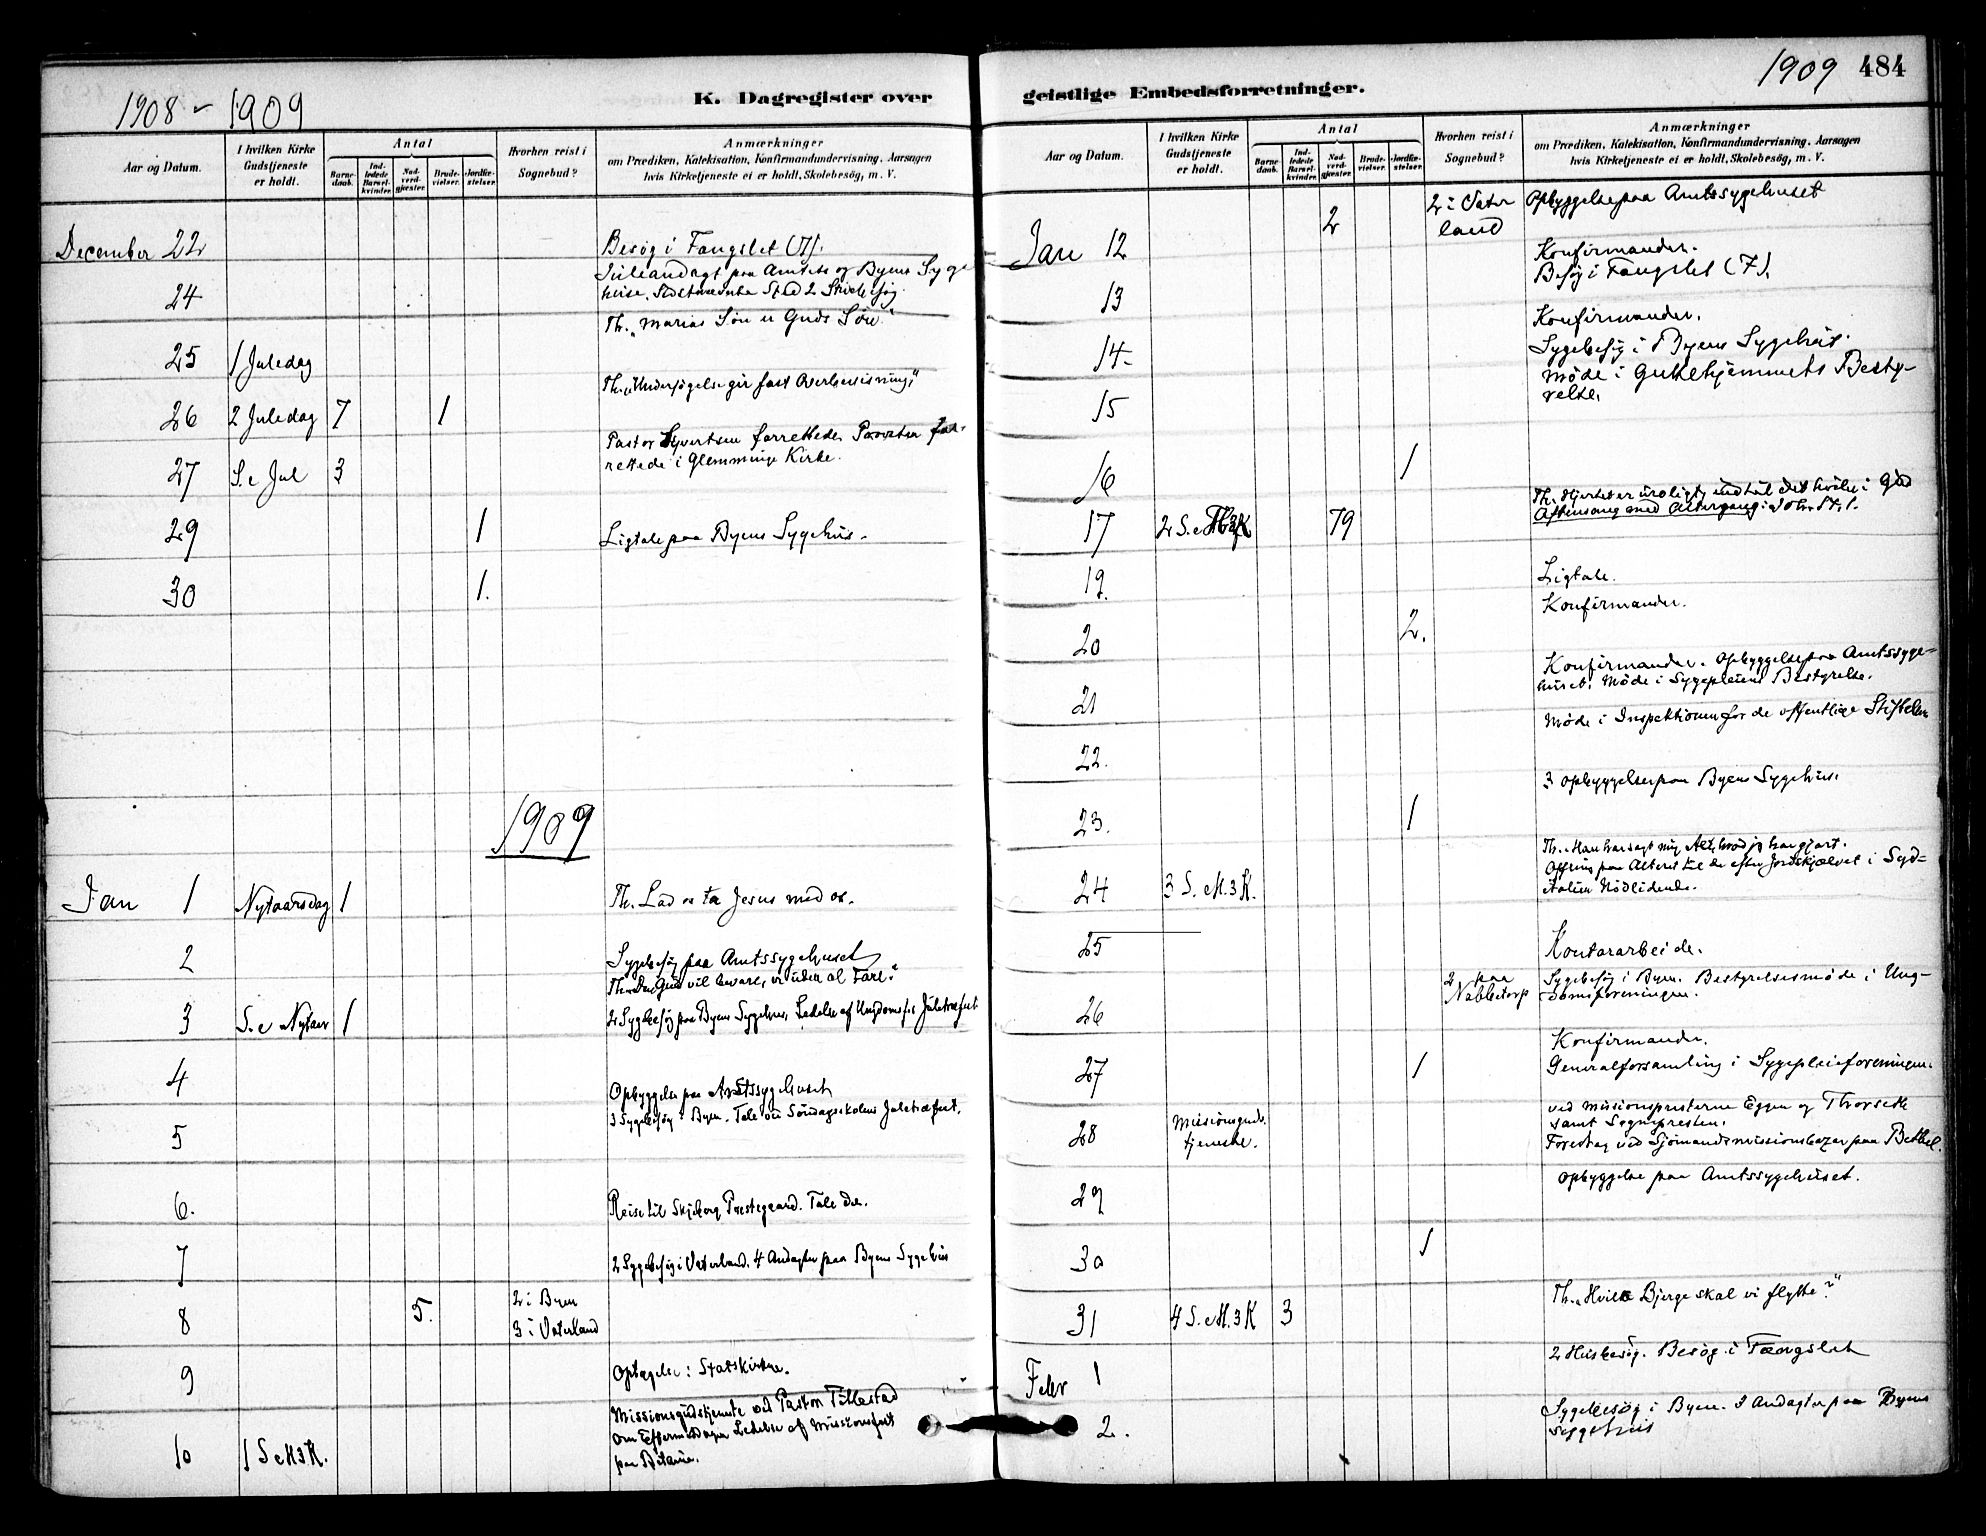 1908 - 1909
K. Dagregister over
Aar og Datum.
I hvilken Kirke
Gudstjeneste
er holdt.
Antal
Barne-
daab.
Ind-
ledede
Barsel-
kvinder.
Nad-
verd-
gjæster.
Brude-
vielser.
Jordfæ-
stelser.
Hvorhen reist i
Sognebud?
Anmærkninger
om Prædiken, Katekisation, Konfirmandundervisning, Aarsagen
hvis Kirketjeneste ei er holdt, Skolebesög, m. V.
December 22
Besög i Fængslet (7).
24
Juleandagt paa Amtets og Byens Syge
huse.
25 1 Juledag
Th. "Marias Sön er Guds Sön"
26 2 Juledag 7 1
Th. "Undersögelse gir fast Overbevisning"
27 S. e Jul 3
Pastor Syvertsen forrettede. Provsten for-
rettede i Glemminge Kirke.
29 1
Ligtale paa Byens Sygehus.
30 1.
1909
Jan 1 Nytaarsdag 1
Th. Lad os ta Jesus med os.
2
Sygebesög paa Amtssygehuset
3 S. e Nytaar 1
Th. Gud vil bevare, vi uden al Fare.
2 Sygebesög paa Byens Sygehus, Ledelse af Ungdomsf.s Juletræfest
4
5
Opbyggelse paa Amtssygehuset
3 Sygebesög i Byen. Tale ved Söndagsskolens Juletræfest.
6.
Reise til Skjeberg Prestegaard. Tale der.
7
2 Sygebesög i Vaterland. 4 Andagter paa Byens Sygehus
8 5.
2 i Byen
3 i Vaterland
9
Optagelse i Statskirken.
10 1 S e H3K.
Missionsgudstjeneste ved Pastor Tillestad
Om Eftermiddagen Ledelse af Missionsfest
paa Betania.
1909 484
geistlige Embedsforretninger.
Aar og Datum.
I hvilken Kirke
Gudstjeneste
er holdt.
Antal
Barne-
daab.
Ind-
ledede
Barsel-
kvinder.
Nad-
verd-
gjæster.
Brude-
vielser.
Jordfæ-
stelser.
Hvorhen reist i
Sognebud?
Anmærkninger
om Prædiken, Katekisation, Konfirmandundervisning, Aarsagen
hvis Kirketjeneste ei er holdt, Skolebesög, m. V.
Jan 12 2
2 i Vater
land
Opbyggelse paa Amtssygehuset
13
Konfirmander.
Besög i Fængslet (7).
14
Konfirmander.
Sygebesög i Byens Sygehus.
15
Möde i Gutehjemmets Besty-
relse.
16 1
17 2 S. e H3K 79
Th. Hjertet er uroligt, indtil det hviler i Gud
Aftensang med Altergang
19.
Ligtale.
20 2.
Konfirmander.
21
Konfirmander. Opbyggelse paa Amtssyge-
huset. Möde i Sygepleiens Bestyrelse.
22.
Möde i Inspektionen for de offentlige Stiftelser
23. 1
3 Opbyggelser paa Byens Sygehus.
24 3 S. e H. 3 K.
Th. Han har sagt mig Alt, hvad jeg har gjort.
Offring paa Alteret til de efter Jordskjælvet i Syd-
italien Nödlidende.
25
Kontorarbeide.
26
2 paa
Nabbetorp
Sygebesög i Byen. Bestyrelsesmöde i Ung-
domsforeningen.
27 1
Konfirmander.
Generalforsamling i Sygepleieforeningen.
28
Missionsguds-
tjeneste.
ved Missionspresterne Eggen og Thorseth
samt Sognepresten.
Foredrag ved Sjömandsmissionsbazar paa Bethel.
29
Opbyggelse paa Amtssygehuset.
30 1
31 4 S. e H. 3 K 3
Th. "Hvilke Bjerge skal vi flytte?"
Febr 1
2 Husbesög. Besög i Fængslet
2.
Sygebesög i Byen. 3 Andagter paa Byens
Sygehus